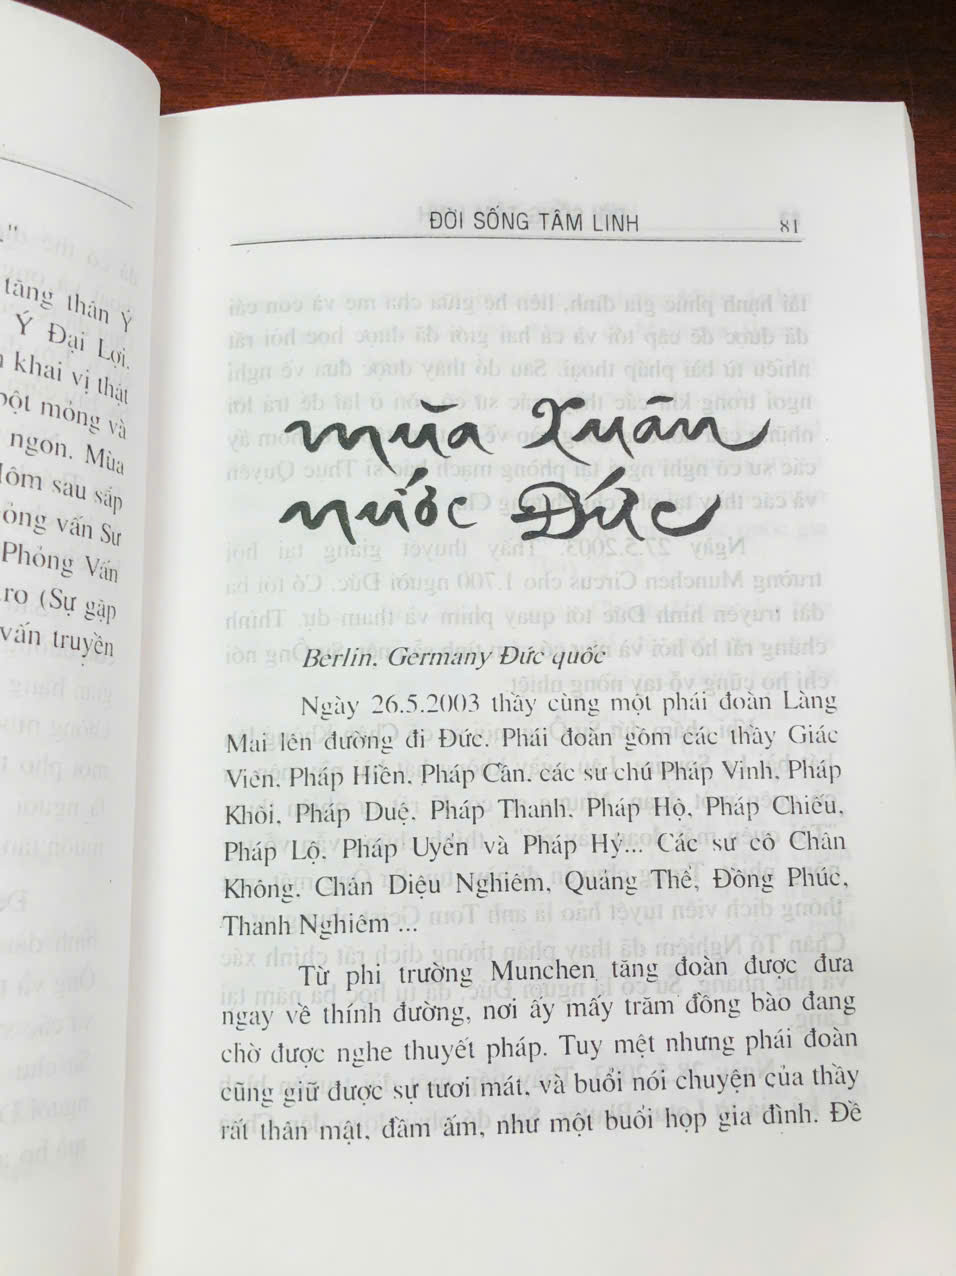 tăng thân Ý
Ý Đại Lợi.
khai vị thật
bột mỏng và
ngon. Mùa
Hôm sau sắp
phỏng vấn Sư
Phỏng Vấn
(Sự gặp
vấn truyền
ĐỜI SỐNG TÂM LINH 81
mùa Xuân
nước Đức
Berlin. Germany Đức quốc
Ngày 26.5.2003 thầy cùng một phái đoàn Làng
Mai lên đường đi Đức. Phái đoàn gồm các thầy Giác
Viên, Pháp Hiền, Pháp Cần, các sư chú Pháp Vinh, Pháp
Khôi, Pháp Duệ, Pháp Thanh, Pháp Hộ, Pháp Chiếu,
Pháp Lộ, Pháp Uyển và Pháp Hỷ... Các sư cô Chân
Không, Chân Diệu Nghiêm, Quảng Thể, Đồng Phúc,
Thanh Nghiêm ...
Từ phi trường Munchen tăng đoàn được đưa
ngay về thính đường, nơi ấy mấy trăm đồng bào đang
chờ được nghe thuyết pháp. Tuy mệt nhưng phái đoàn
cũng giữ được sự tươi mát, và buổi nói chuyện của thầy
rất thân mật, đầm ấm, như một buổi họp gia đình. Đề